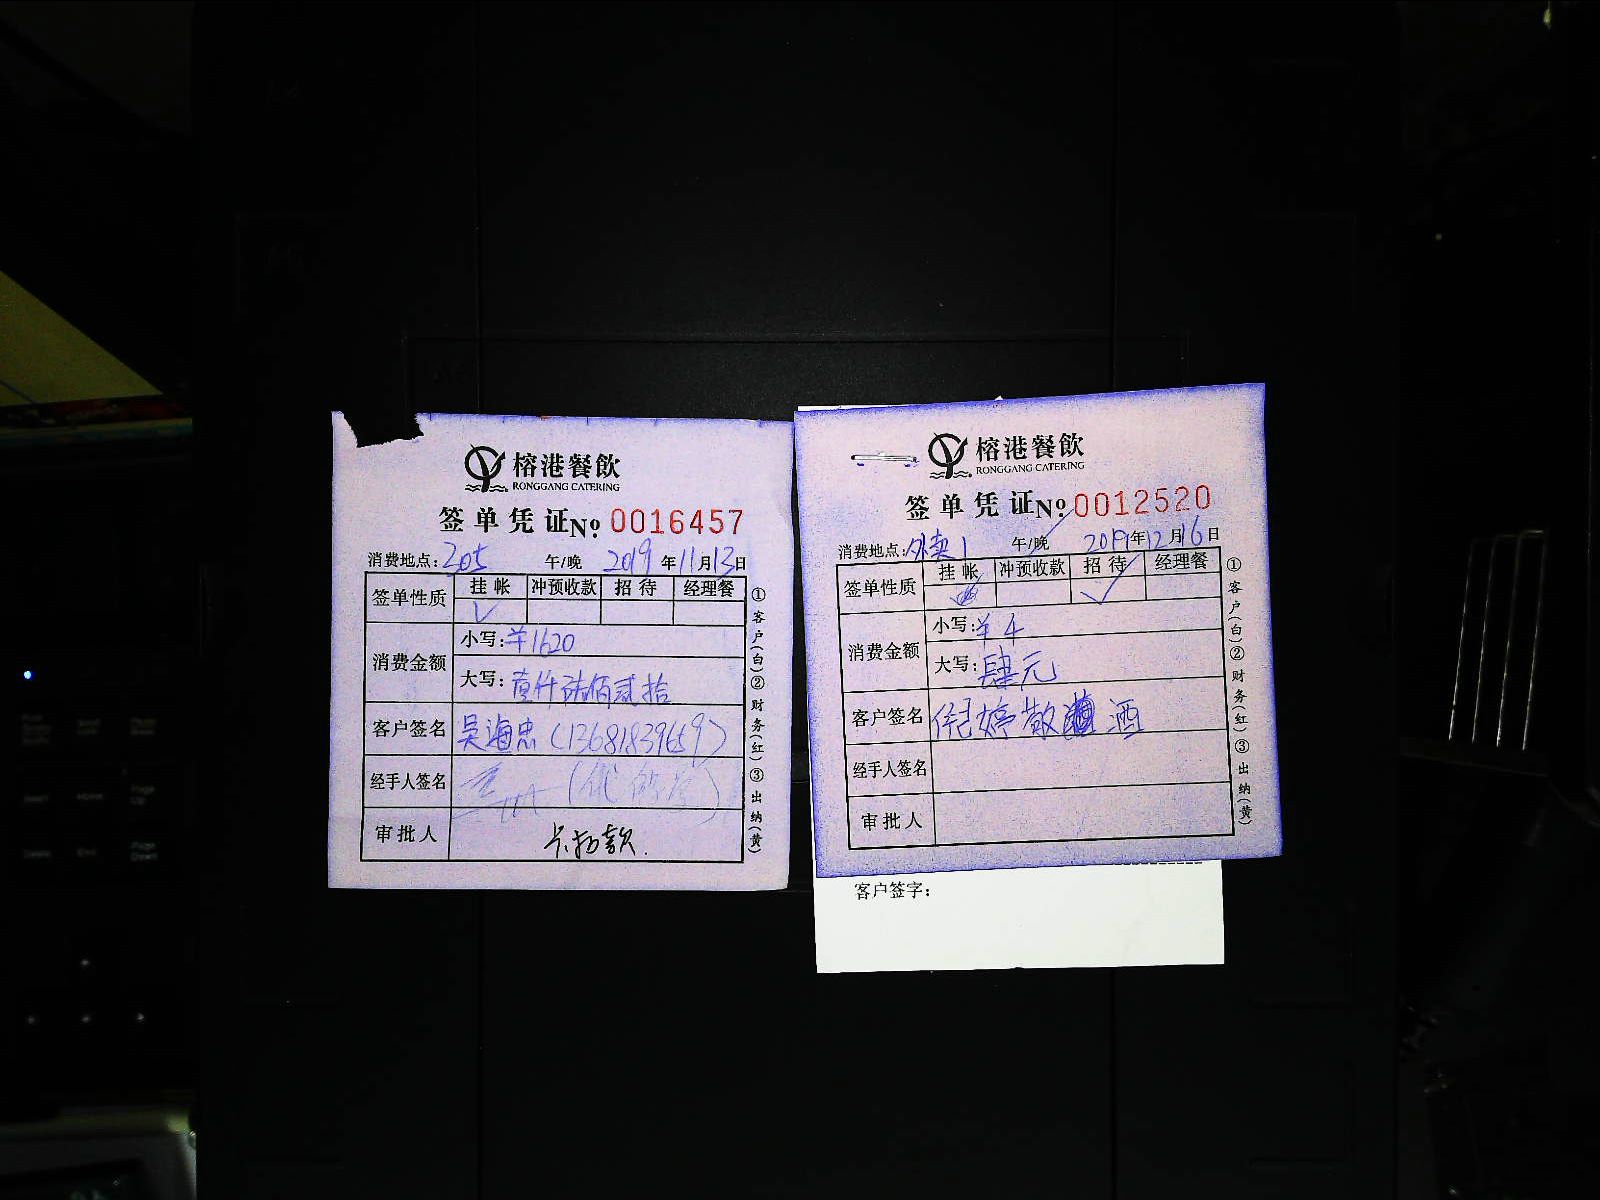 榕港餐飲
RONGGANG CATERING
签单凭证№ 0016457
消费地点：205 午/晚 2019年11月13日
签单性质 挂帐 冲预收款 招待 经理餐
✓
消费金额 小写：¥1620
大写：壹仟陆佰贰拾
客户签名 吴海忠（13681839659）
经手人签名
审批人 卡扣款.
①客户(白)②财务(红)③出纳(黄)
榕港餐飲
RONGGANG CATERING
签单凭证№ 0012520
消费地点：外卖1 午/晚 2019年12月16日
签单性质 挂帐 冲预收款 招待 经理餐
✓
消费金额 小写：¥4
大写：肆元
客户签名 倪婷散酒
经手人签名
审批人
①客户(白)②财务(红)③出纳(黄)
客户签字：